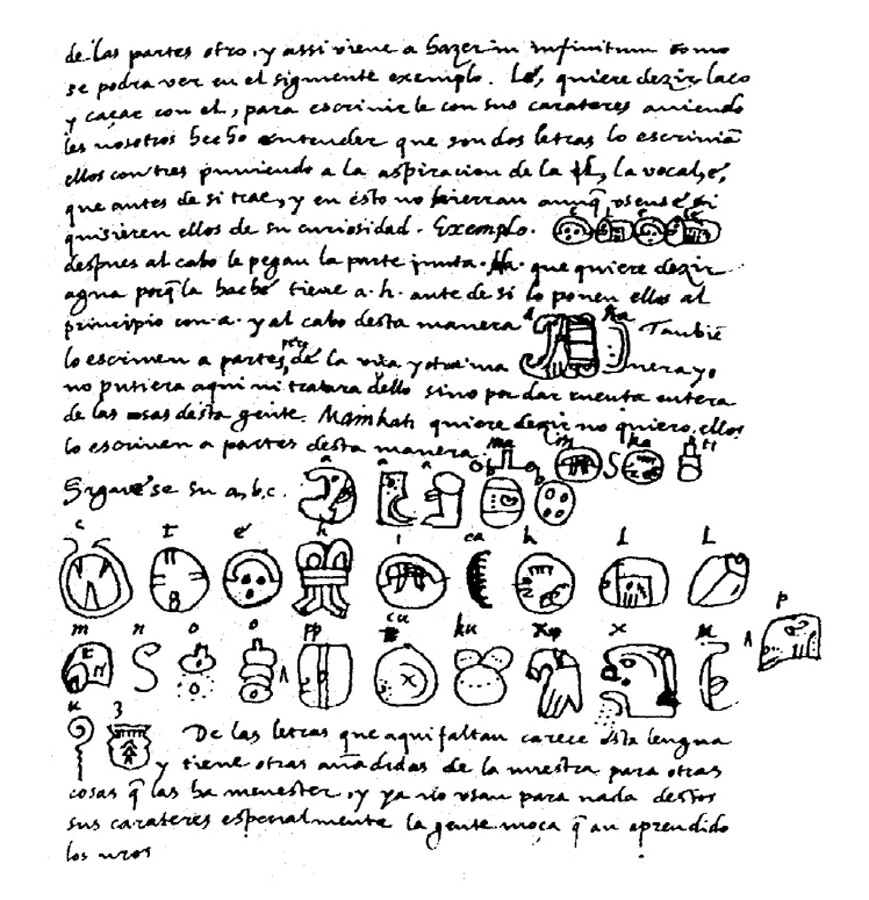 de las partes otro, y assi viene a hazer in infinitum como
se podra ver en el siguiente exemplo. Lé, quiere dezir laço
y caçar con el, para escriuir le con sus carateres auiendo
les nosotros hecho entender que son dos letras lo escriuiā
ellos con tres puniendo a la aspiracion de la l, la vocal, é,
que antes de si trae, y en esto no hierran aunq̄ vsense, si
quisieren ellos de su curiosidad. Exemplo. e l e lé
despues al cabo le pegan la parte junta. Ha. que quiere dezir
agua porq̄ la haché tiene a. h. ante de si lo ponen ellos al
principio con a. y al cabo desta manera a ha Tanbiē
lo escriuen a partes, pero de la vna y otra ma nera yo
no pusiera aqui ni tratara dello sino por dar cuenta entera
de las cosas desta gente. Mainkati quiere dezir no quiero, ellos
lo escriuen a partes desta manera. ma i n ka ti
Siguese su a, b, c. a a a b b
c t é h i ca k l L
m n o o pp cu ku x x u p
u z De las letras que aqui faltan carece esta lengua
y tiene otras añadidas de la nuestra para otras
cosas q̄ las ha menester, y ya no vsan para nada destos
sus carateres especialmente la gente moça q̄ an aprendido
los nros